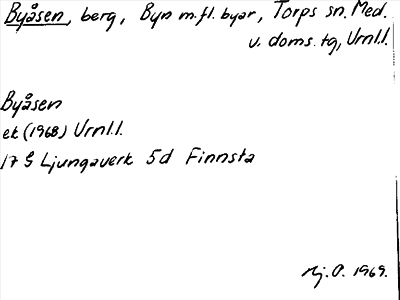 Byåsen, berg, Byn m.fl. byar, Torps sn. Med.
v. doms. tg, Urnl.l.
Byåsen
ek (1968) Urnl.l.
17 G Ljungaverk 5d Finnsta
Nj. O. 1969.